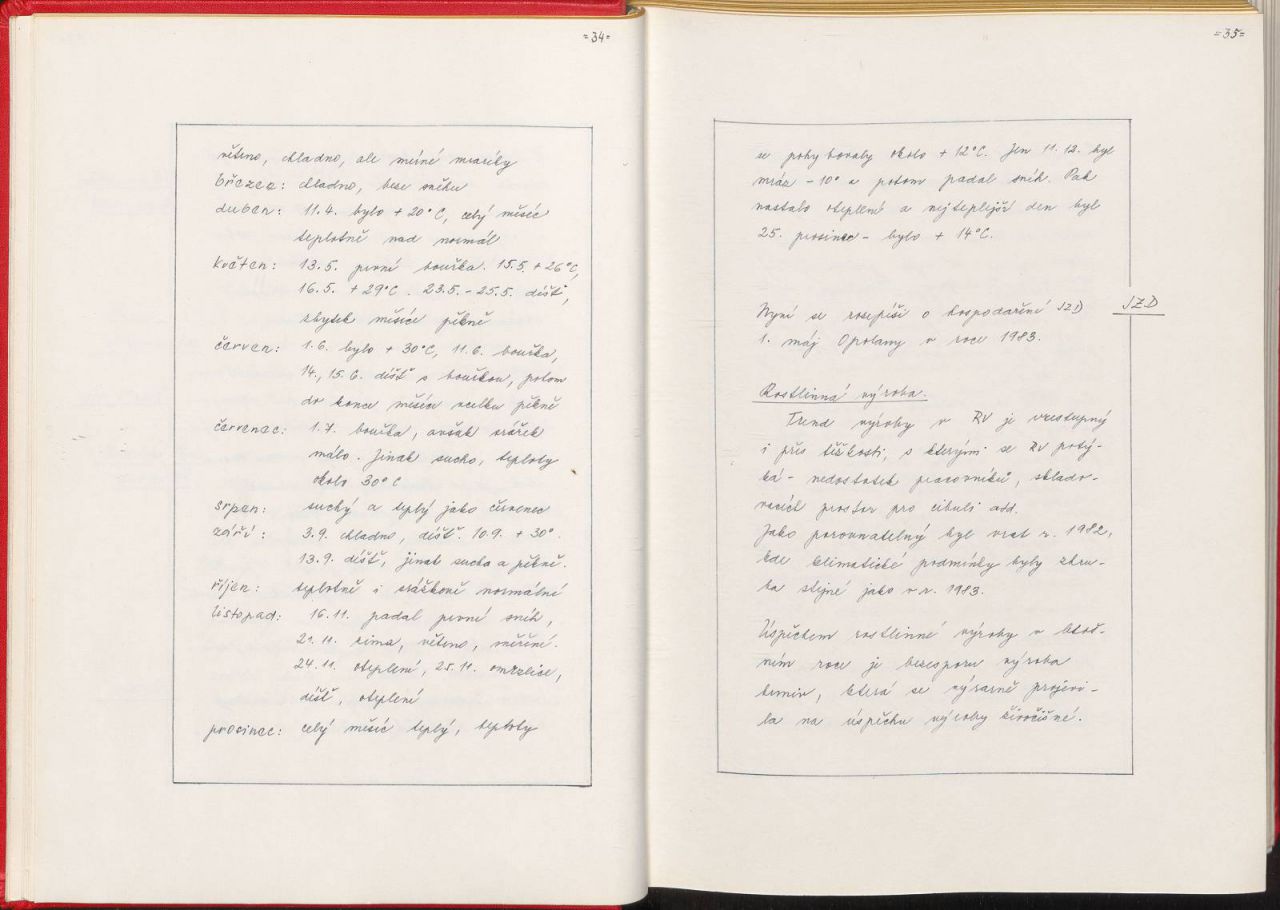 =34=
větrno, chladno, ale mírné mrazíky
březen: chladno, beze sněhu
duben: 11.4. bylo + 20°C, celý měsíc
teplotně nad normál
květen: 13.5. první bouřka. 15.5. + 26°C,
16.5. + 29°C. 23.5.-25.5. déšť,
zbytek měsíce pěkně
červen: 1.6. bylo + 30°C, 11.6. bouřka,
14., 15.6. déšť s bouřkou, potom
do konce měsíce vcelku pěkně
červenec: 1.7. bouřka, avšak srážek
málo. Jinak sucho, teploty
okolo 30°C
srpen: suchý a teplý jako červenec
září: 3.9. chladno, déšť. 10.9. + 30°.
13.9. déšť, jinak sucho a pěkně.
říjen: teplotně i srážkově normální
listopad: 16.11. padal první sníh,
21.11. zima, větrno, mrzení.
24.11. oteplení, 25.11. omrzlice,
déšť, oteplení
prosinec: celý měsíc teplý, teploty
=35=
se pohybovaly okolo + 12°C. Jen 11.12. byl
mráz - 10° a potom padal sníh. Pak
nastalo oteplení a nejteplejší den byl
25. prosinec - bylo + 14°C.
JZD
Nyní se rozepíši o hospodaření JZD
1. máj Opolany v roce 1983.
Rostlinná výroba.
Trend výroby v RV je vzestupný
i přes těžkosti, s kterými se RV potý-
ká - nedostatek pracovníků, sklado-
vacích prostor pro cibuli atd.
Jako porovnatelný byl vzat r. 1982,
kde klimatické podmínky byly zhru-
ba stejné jako v r. 1983.
Úspěchem rostlinné výroby v letoš-
ním roce je bezesporu výroba
krmiv, která se výrazně projevi-
la na úspěchu výroby živočišné.